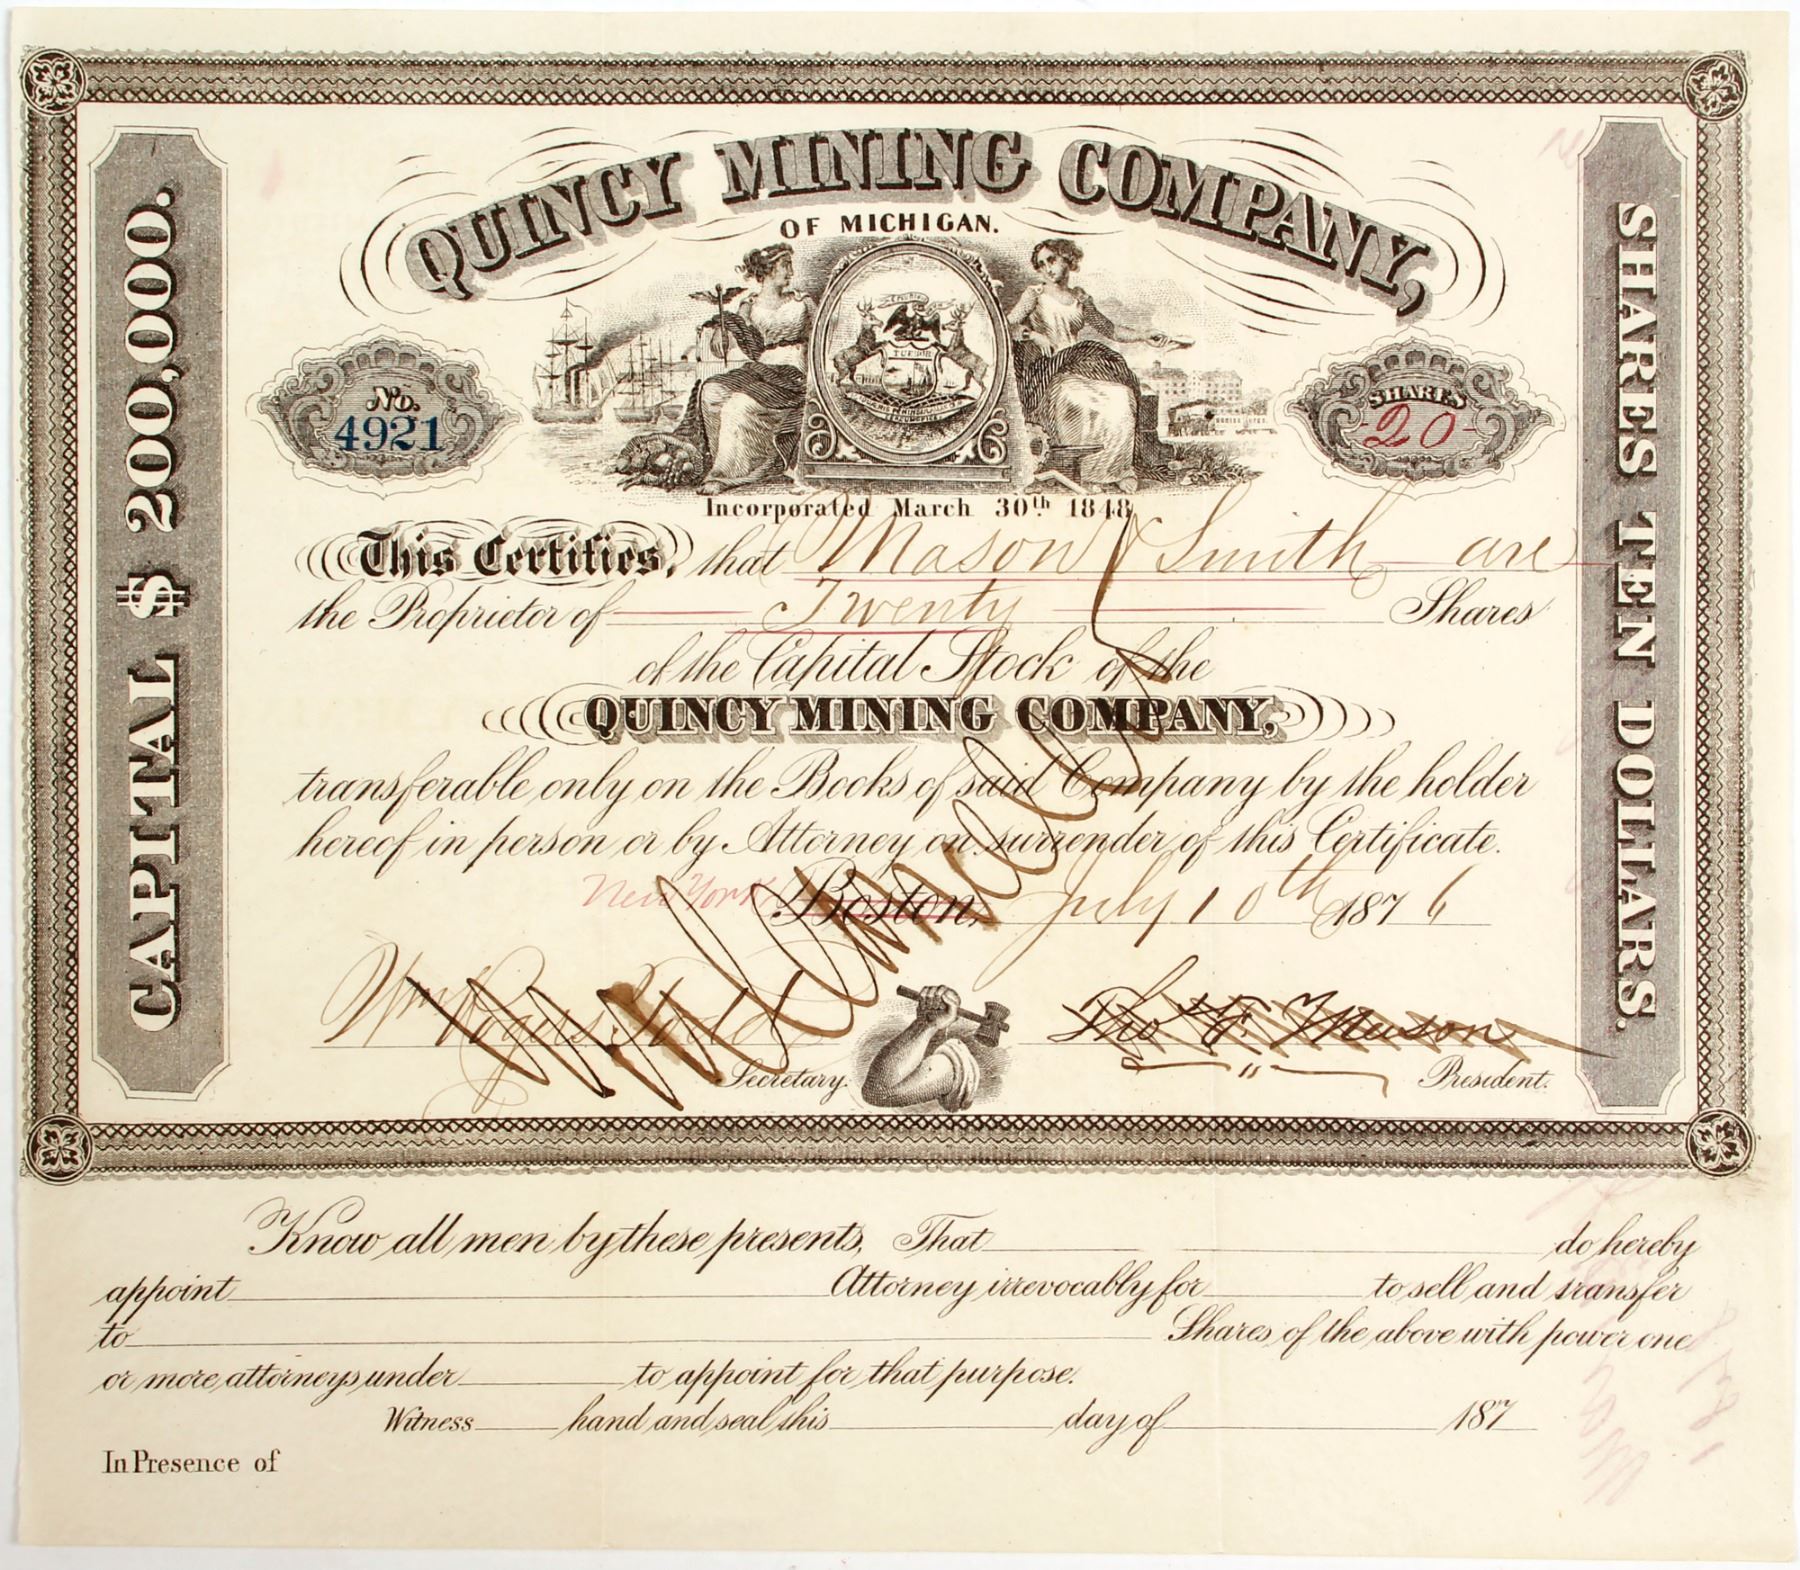 QUINCY MINING COMPANY,
OF MICHIGAN.
CAPITAL $ 200,000.
SHARES TEN DOLLARS.
No.
4921
SHARES
20
TUEBOR
Incorporated March 30th. 1848
This Certifies, that Mason & Smith are
the Proprietor of Twenty Shares
of the Capital Stock of the
QUINCY MINING COMPANY,
transferable only on the Books of said Company by the holder
hereof in person or by Attorney on surrender of this Certificate.
New York Boston, July 10th 1876
Cancelled
Wm Rogers Todd
Secretary.
Tho F. Mason
President.
Know all men by these presents, That do hereby
appoint Attorney irrevocably for to sell and transfer
to Shares of the above with power one
or more attorneys under to appoint for that purpose.
Witness hand and seal this day of 187
In Presence of